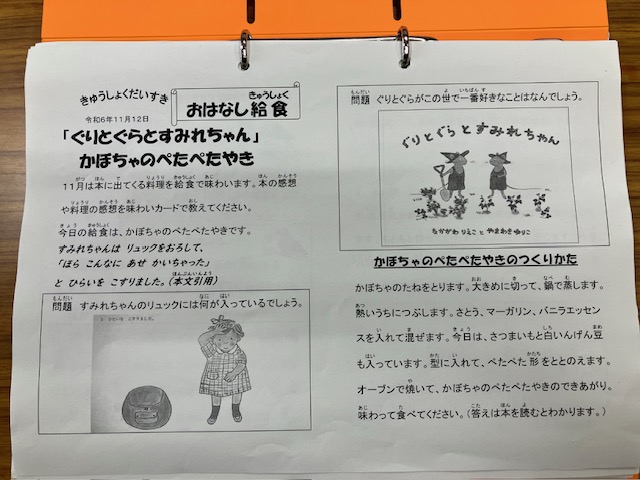 きゅうしょくだいすき
おはなし給食
令和6年11月12日
「ぐりとぐらとすみれちゃん」
かぼちゃのぺたぺたやき
11月は本に出てくる料理を給食で味わいます。本の感想
や料理の感想を味わいカードで教えてください。
今日の給食は、かぼちゃのぺたぺたやきです。
すみれちゃんは リュックをおろして、
「ほら こんなに あせ かいちゃった」
と ひらいを こすりました。(本文引用)
問題 すみれちゃんのリュックには何が入っているでしょう。
問題 ぐりとぐらがこの世で一番好きなことはなんでしょう。
ぐりとぐらとすみれちゃん
なかがわりえこ と やまわきゆりこ
かぼちゃのぺたぺたやきのつくりかた
かぼちゃのたねをとります。大きめに切って、鍋で蒸します。
熱いうちにつぶします。さとう、マーガリン、バニラエッセン
スを入れて混ぜます。今日は、さつまいもと白いんげん豆
も入っています。型に入れて、ぺたぺた形をととのえます。
オーブンで焼いて、かぼちゃのぺたぺたやきのできあがり。
味わって食べてください。(答えは本を読むとわかります。)